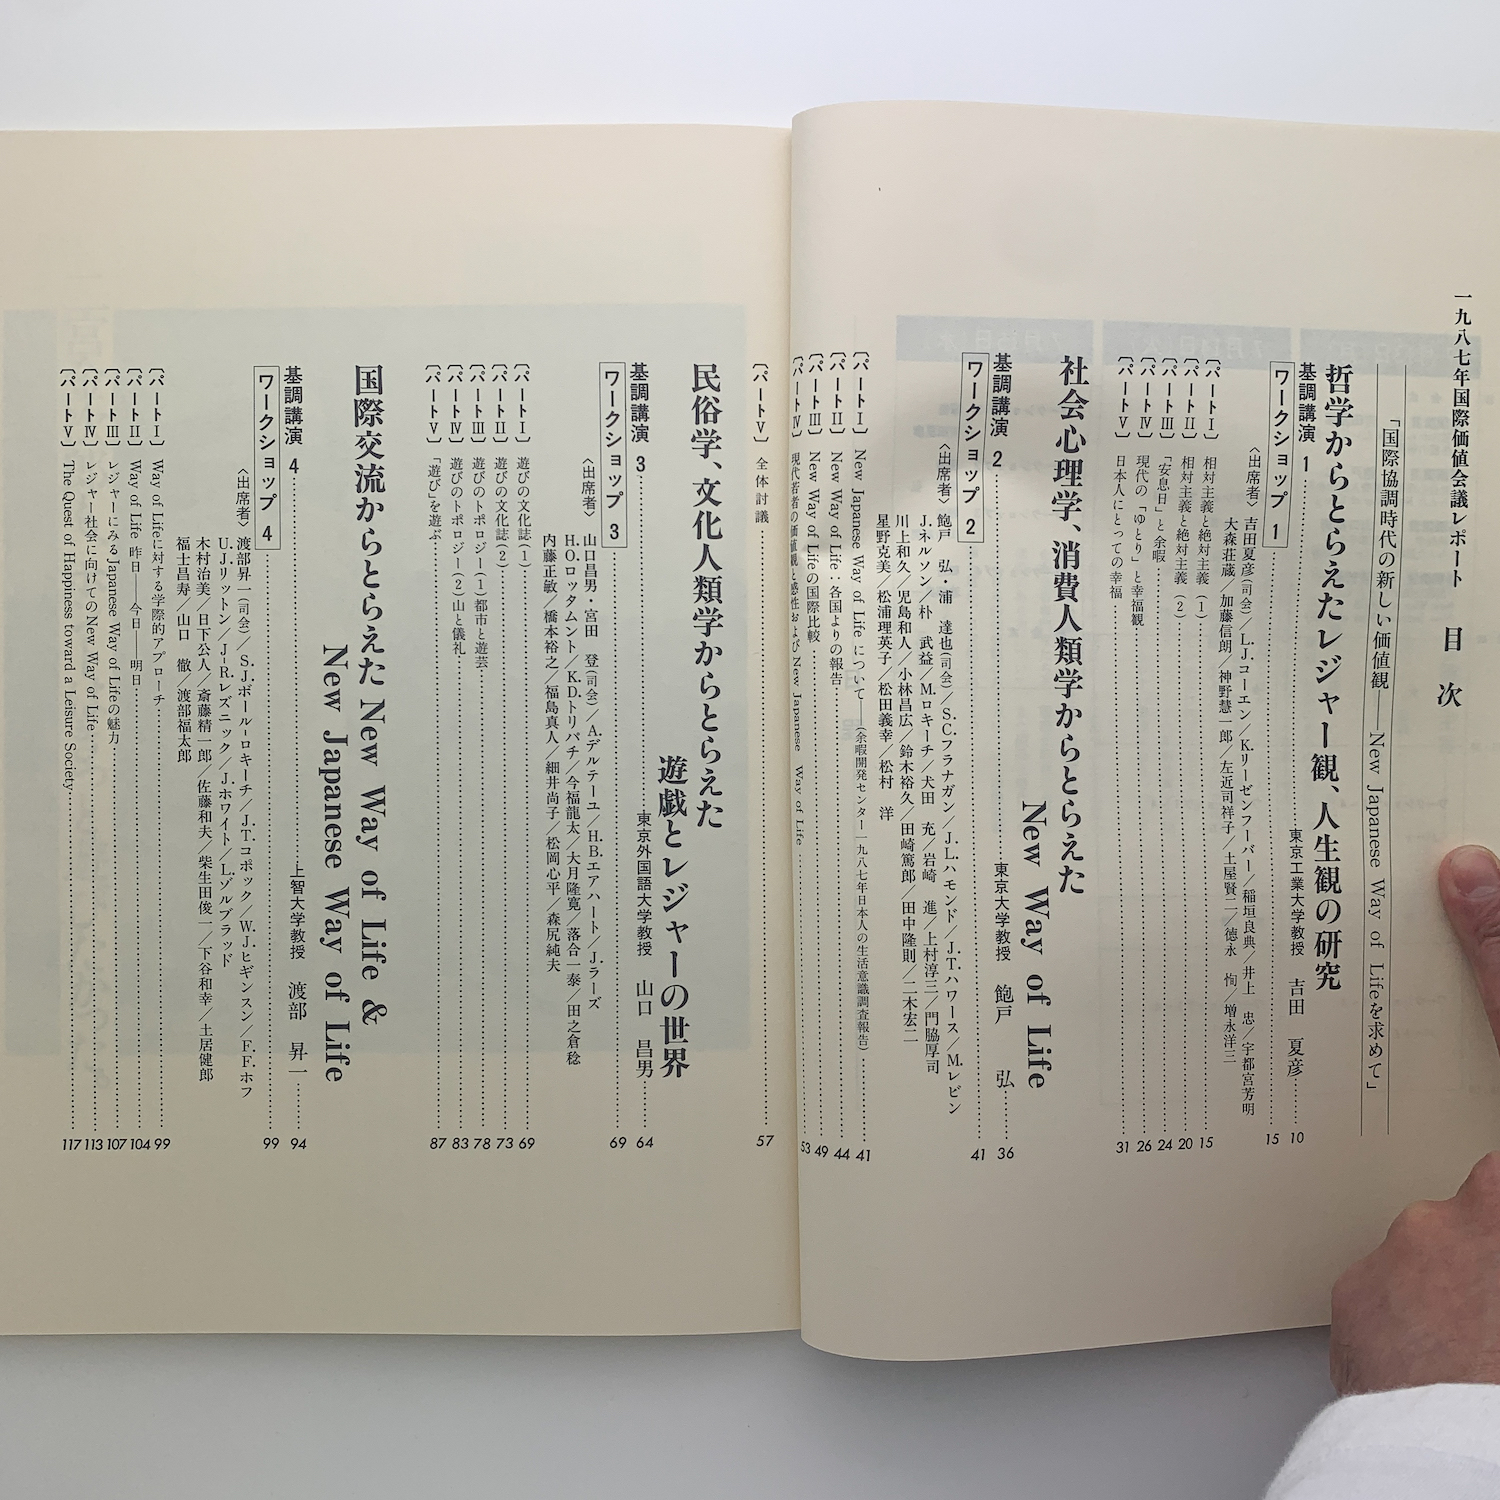 一九八七年国際価値会議レポート　目　次
「国際協調時代の新しい価値観――New Japanese Way of Lifeを求めて」
哲学からとらえたレジャー観、人生観の研究
基調講演　1……東京工業大学教授　吉田　夏彦……10
ワークショップ　1……15
〈出席者〉吉田夏彦(司会)／L.J.コーエン／K.リーゼンフーバー／稲垣良典／井上　忠／宇都宮芳明
大森荘蔵／加藤信朗／神野慧一郎／左近司祥子／土屋賢二／徳永　恂／増永洋三
〔パートⅠ〕相対主義と絶対主義（1）……15
〔パートⅡ〕相対主義と絶対主義（2）……20
〔パートⅢ〕「安息日」と余暇……24
〔パートⅣ〕現代の「ゆとり」と幸福観……26
〔パートⅤ〕日本人にとっての幸福……31
社会心理学、消費人類学からとらえた
New Way of Life
基調講演　2……東京大学教授　飽戸　弘……36
ワークショップ　2……41
〈出席者〉飽戸　弘・浦　達也(司会)／S.C.フラナガン／J.L.ハモンド／J.T.ハワース／M.レビン
J.ネルソン／朴　武益／M.ロキーチ／犬田　充／岩崎　進／上村淳三／門脇厚司
川上和久／児島和人／小林昌広／鈴木裕久／田崎篤郎／田中隆則／二木宏二
星野克美／松浦理英子／松田義幸／松村　洋
〔パートⅠ〕New Japanese Way of Life について――（余暇開発センター一九八七年日本人の生活意識調査報告）……41
〔パートⅡ〕New Way of Life：各国よりの報告……44
〔パートⅢ〕New Way of Lifeの国際比較……49
〔パートⅣ〕現代若者の価値観と感性および New Japanese Way of Life……53
〔パートⅤ〕全体討議……57
民俗学、文化人類学からとらえた
遊戯とレジャーの世界
基調講演　3……東京外国語大学教授　山口　昌男……64
ワークショップ　3……69
〈出席者〉山口昌男・宮田　登(司会)／A.デルテーユ／H.B.エアハート／J.ラーズ
H.O.ロッタムント／K.D.トリパチ／今福龍太／大月隆寛／落合一泰／田之倉稔
内藤正敏／橋本裕之／福島真人／細井尚子／松岡心平／森尻純夫
〔パートⅠ〕遊びの文化誌（1）……69
〔パートⅡ〕遊びの文化誌（2）……73
〔パートⅢ〕遊びのトポロジー（1）都市と遊芸……78
〔パートⅣ〕遊びのトポロジー（2）山と儀礼……83
〔パートⅤ〕「遊び」を遊ぶ……87
国際交流からとらえた New Way of Life &
New Japanese Way of Life
基調講演　4……上智大学教授　渡部　昇一……94
ワークショップ　4……99
〈出席者〉渡部昇一(司会)／S.J.ボール-ロキーチ／J.T.コポック／W.J.ヒギンスン／F.F.ホフ
U.J.リットン／J-R.レズニック／J.ホワイト／L.ゾルブラッド
木村治美／日下公人／斎藤精一郎／佐藤和夫／柴生田俊一／下谷和幸／土居健郎
福士昌寿／山口　徹／渡部福太郎
〔パートⅠ〕Way of Lifeに対する学際的アプローチ……99
〔パートⅡ〕Way of Life 昨日――今日――明日……104
〔パートⅢ〕レジャーにみるJapanese Way of Lifeの魅力……107
〔パートⅣ〕レジャー社会に向けてのNew Way of Life……113
〔パートⅤ〕The Quest of Happiness toward a Leisure Society……117